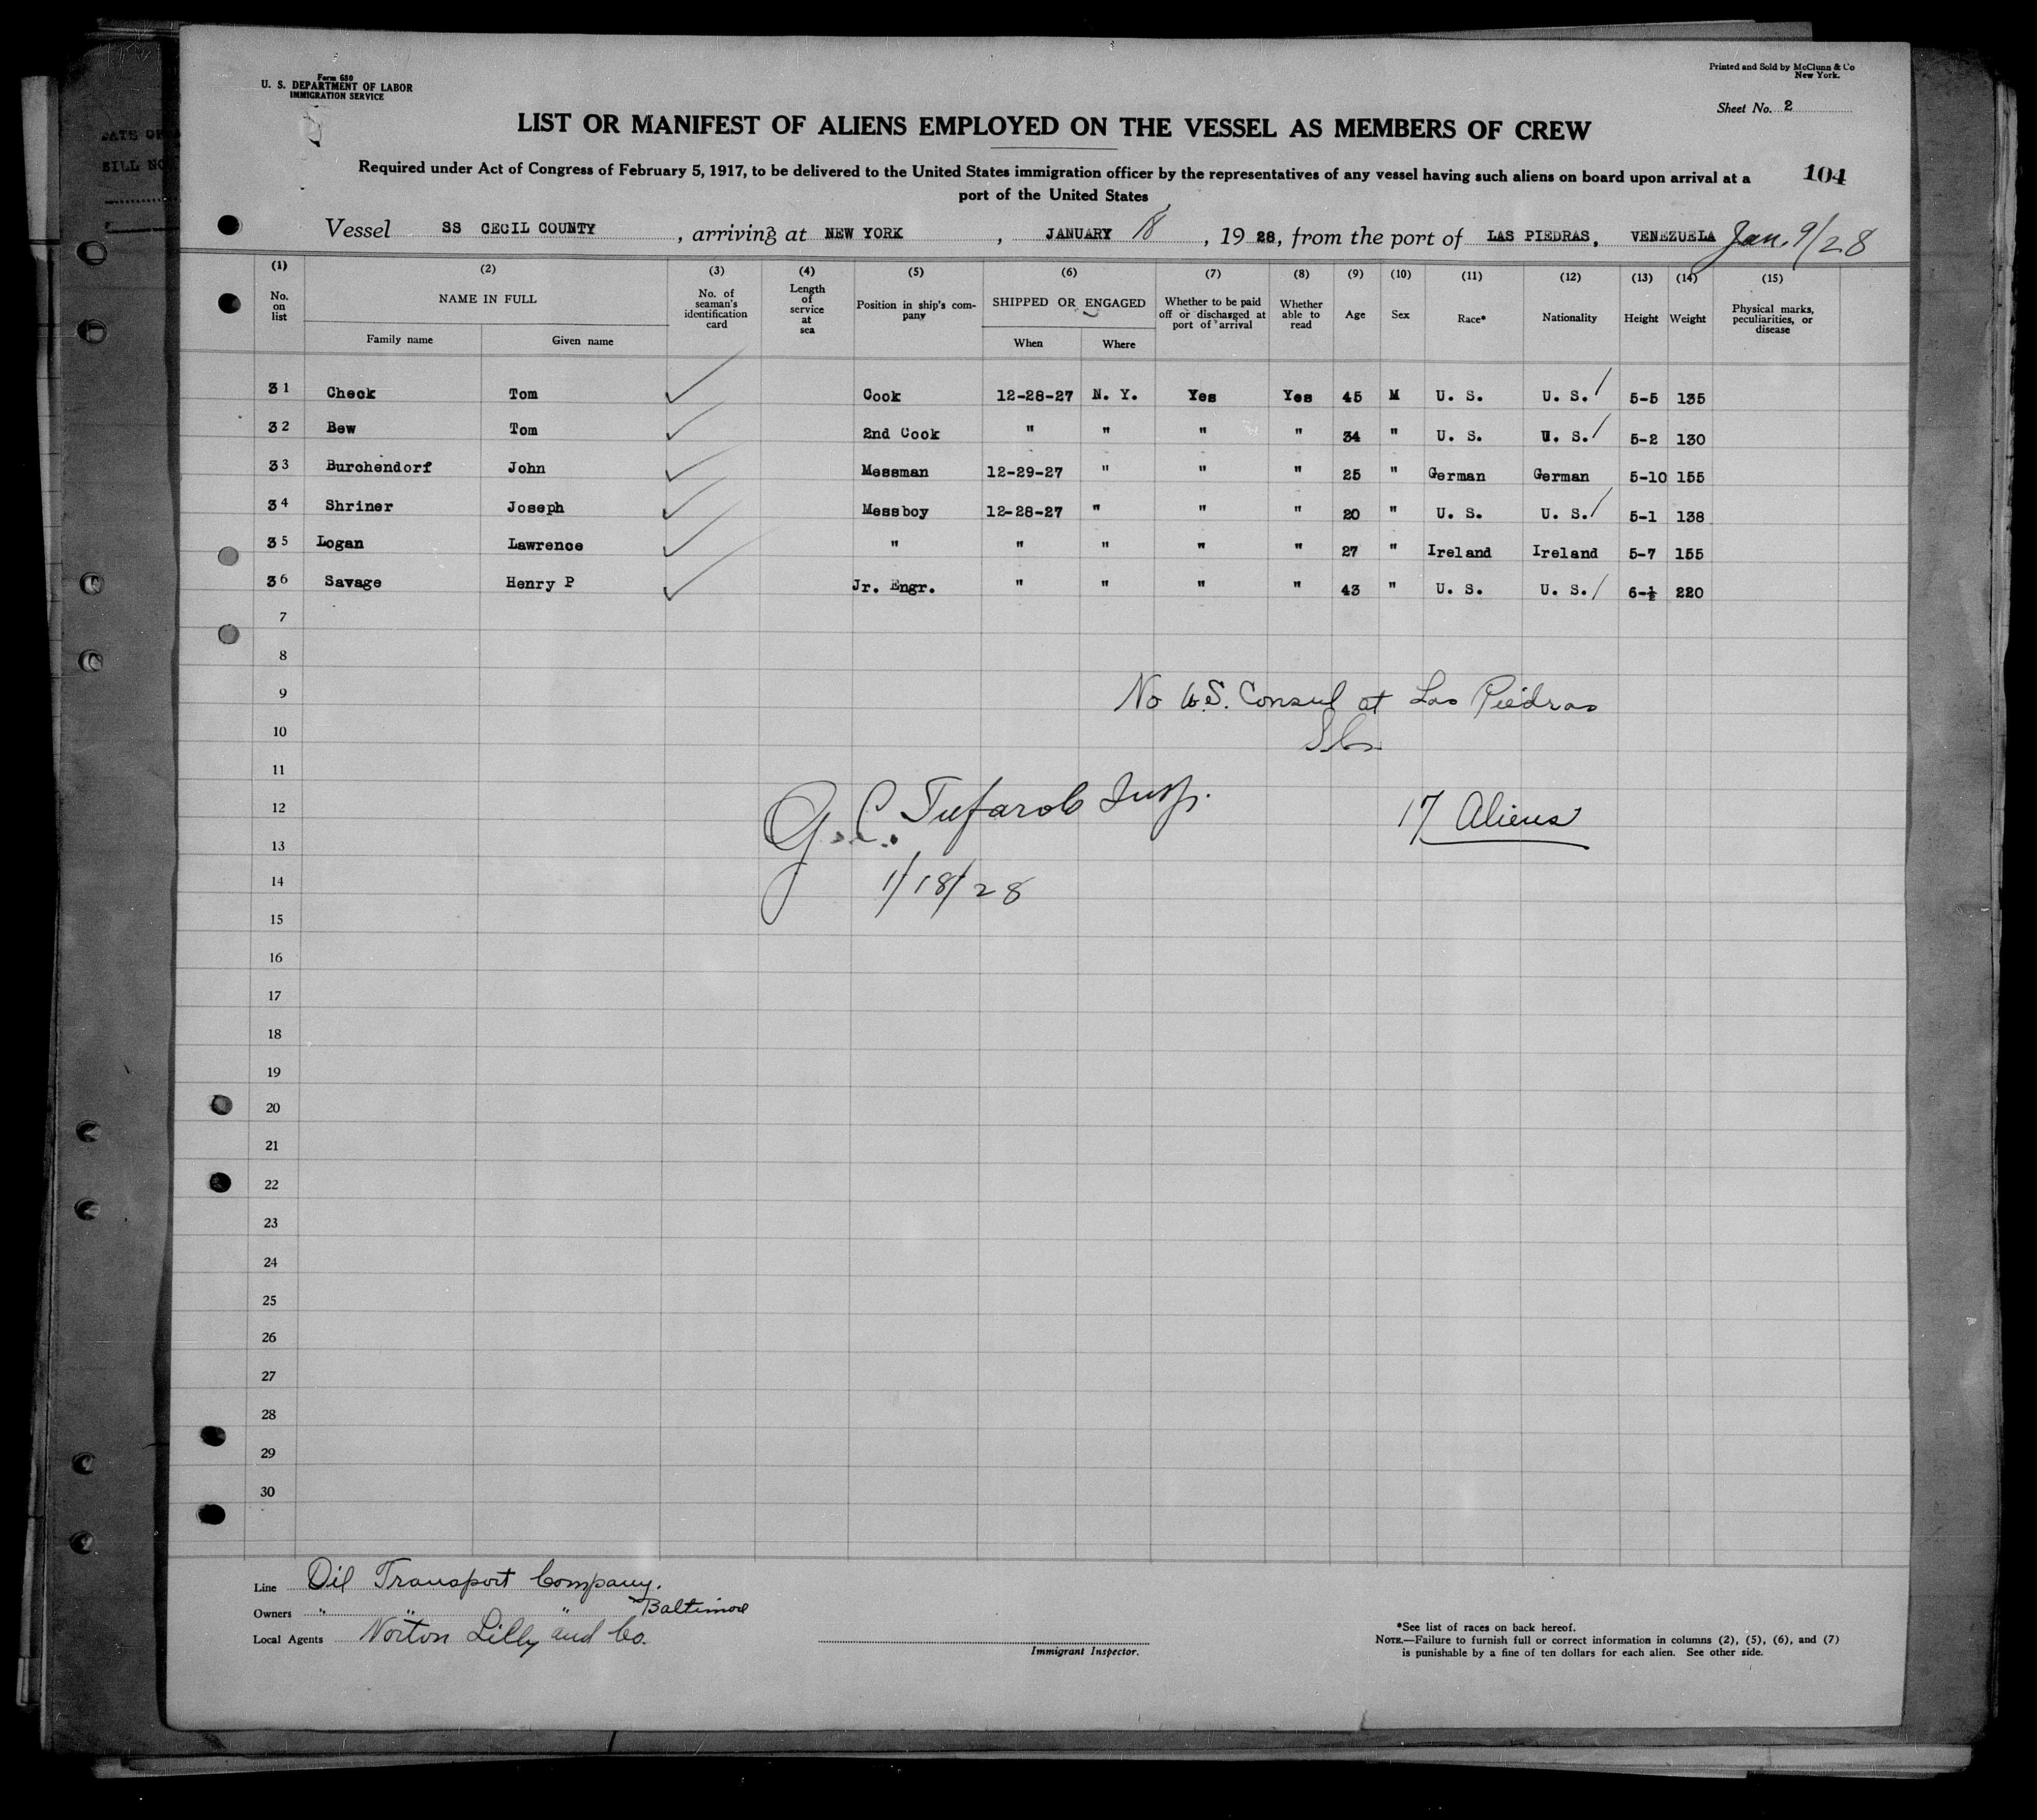 Form 680
U. S. DEPARTMENT OF LABOR
IMMIGRATION SERVICE
Printed and Sold by McClunn & Co
New York.
Sheet No. 2
LIST OR MANIFEST OF ALIENS EMPLOYED ON THE VESSEL AS MEMBERS OF CREW
Required under Act of Congress of February 5, 1917, to be delivered to the United States immigration officer by the representatives of any vessel having such aliens on board upon arrival at a
port of the United States
104
Vessel SS CECIL COUNTY, arriving at NEW YORK, JANUARY 18, 1928, from the port of LAS PIEDRAS, VENEZUELA Jan. 9/28
(1) (2) (3) (4) (5) (6) (7) (8) (9) (10) (11) (12) (13) (14) (15)
No. on list NAME IN FULL Family name Given name No. of seaman's identification card Length of service at sea Position in ship's company SHIPPED OR ENGAGED When Where Whether to be paid off or discharged at port of arrival Whether able to read Age Sex Race* Nationality Height Weight Physical marks, peculiarities, or disease
31 Check Tom Cook 12-28-27 N. Y. Yes Yes 45 M U. S. U. S. 5-5 135
32 Bew Tom 2nd Cook " " " " 34 " U. S. U. S. 5-2 130
33 Burchendorf John Messman 12-29-27 " " " 25 " German German 5-10 155
34 Shriner Joseph Messboy 12-28-27 " " " 20 " U. S. U. S. 5-1 138
35 Logan Lawrence " " " " " 27 " Ireland Ireland 5-7 155
36 Savage Henry P Jr. Engr. " " " " 43 " U. S. U. S. 6-½ 220
7
8
9 No U.S. Consul at Las Piedras
10
11
12 Insp. 17 Aliens
13
14 1/18/28
15
16
17
18
19
20
21
22
23
24
25
26
27
28
29
30
Line Oil Transport Company.
Owners " " " Baltimore
Local Agents Norton Lilly and Co.
Immigrant Inspector.
*See list of races on back hereof.
NOTE.—Failure to furnish full or correct information in columns (2), (5), (6), and (7)
is punishable by a fine of ten dollars for each alien. See other side.